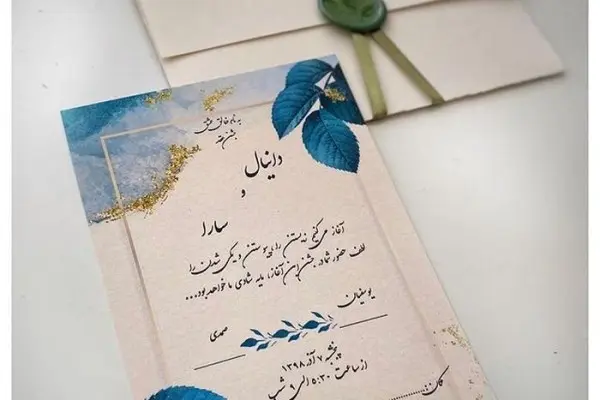 به نام خالق عشق
جشن عقد
دانیال
و
سارا
آغاز می کنیم زیستن را، پیوستن و یکی شدن را
لطف حضور شما در جشن این آغاز، مایه شادی ما خواهد بود...
یوسفیان
صمدی
پنجشنبه ۷ آذر ۱۳۹۸
از ساعت ۵:۳۰ الی ۹ شب
مکان:..................